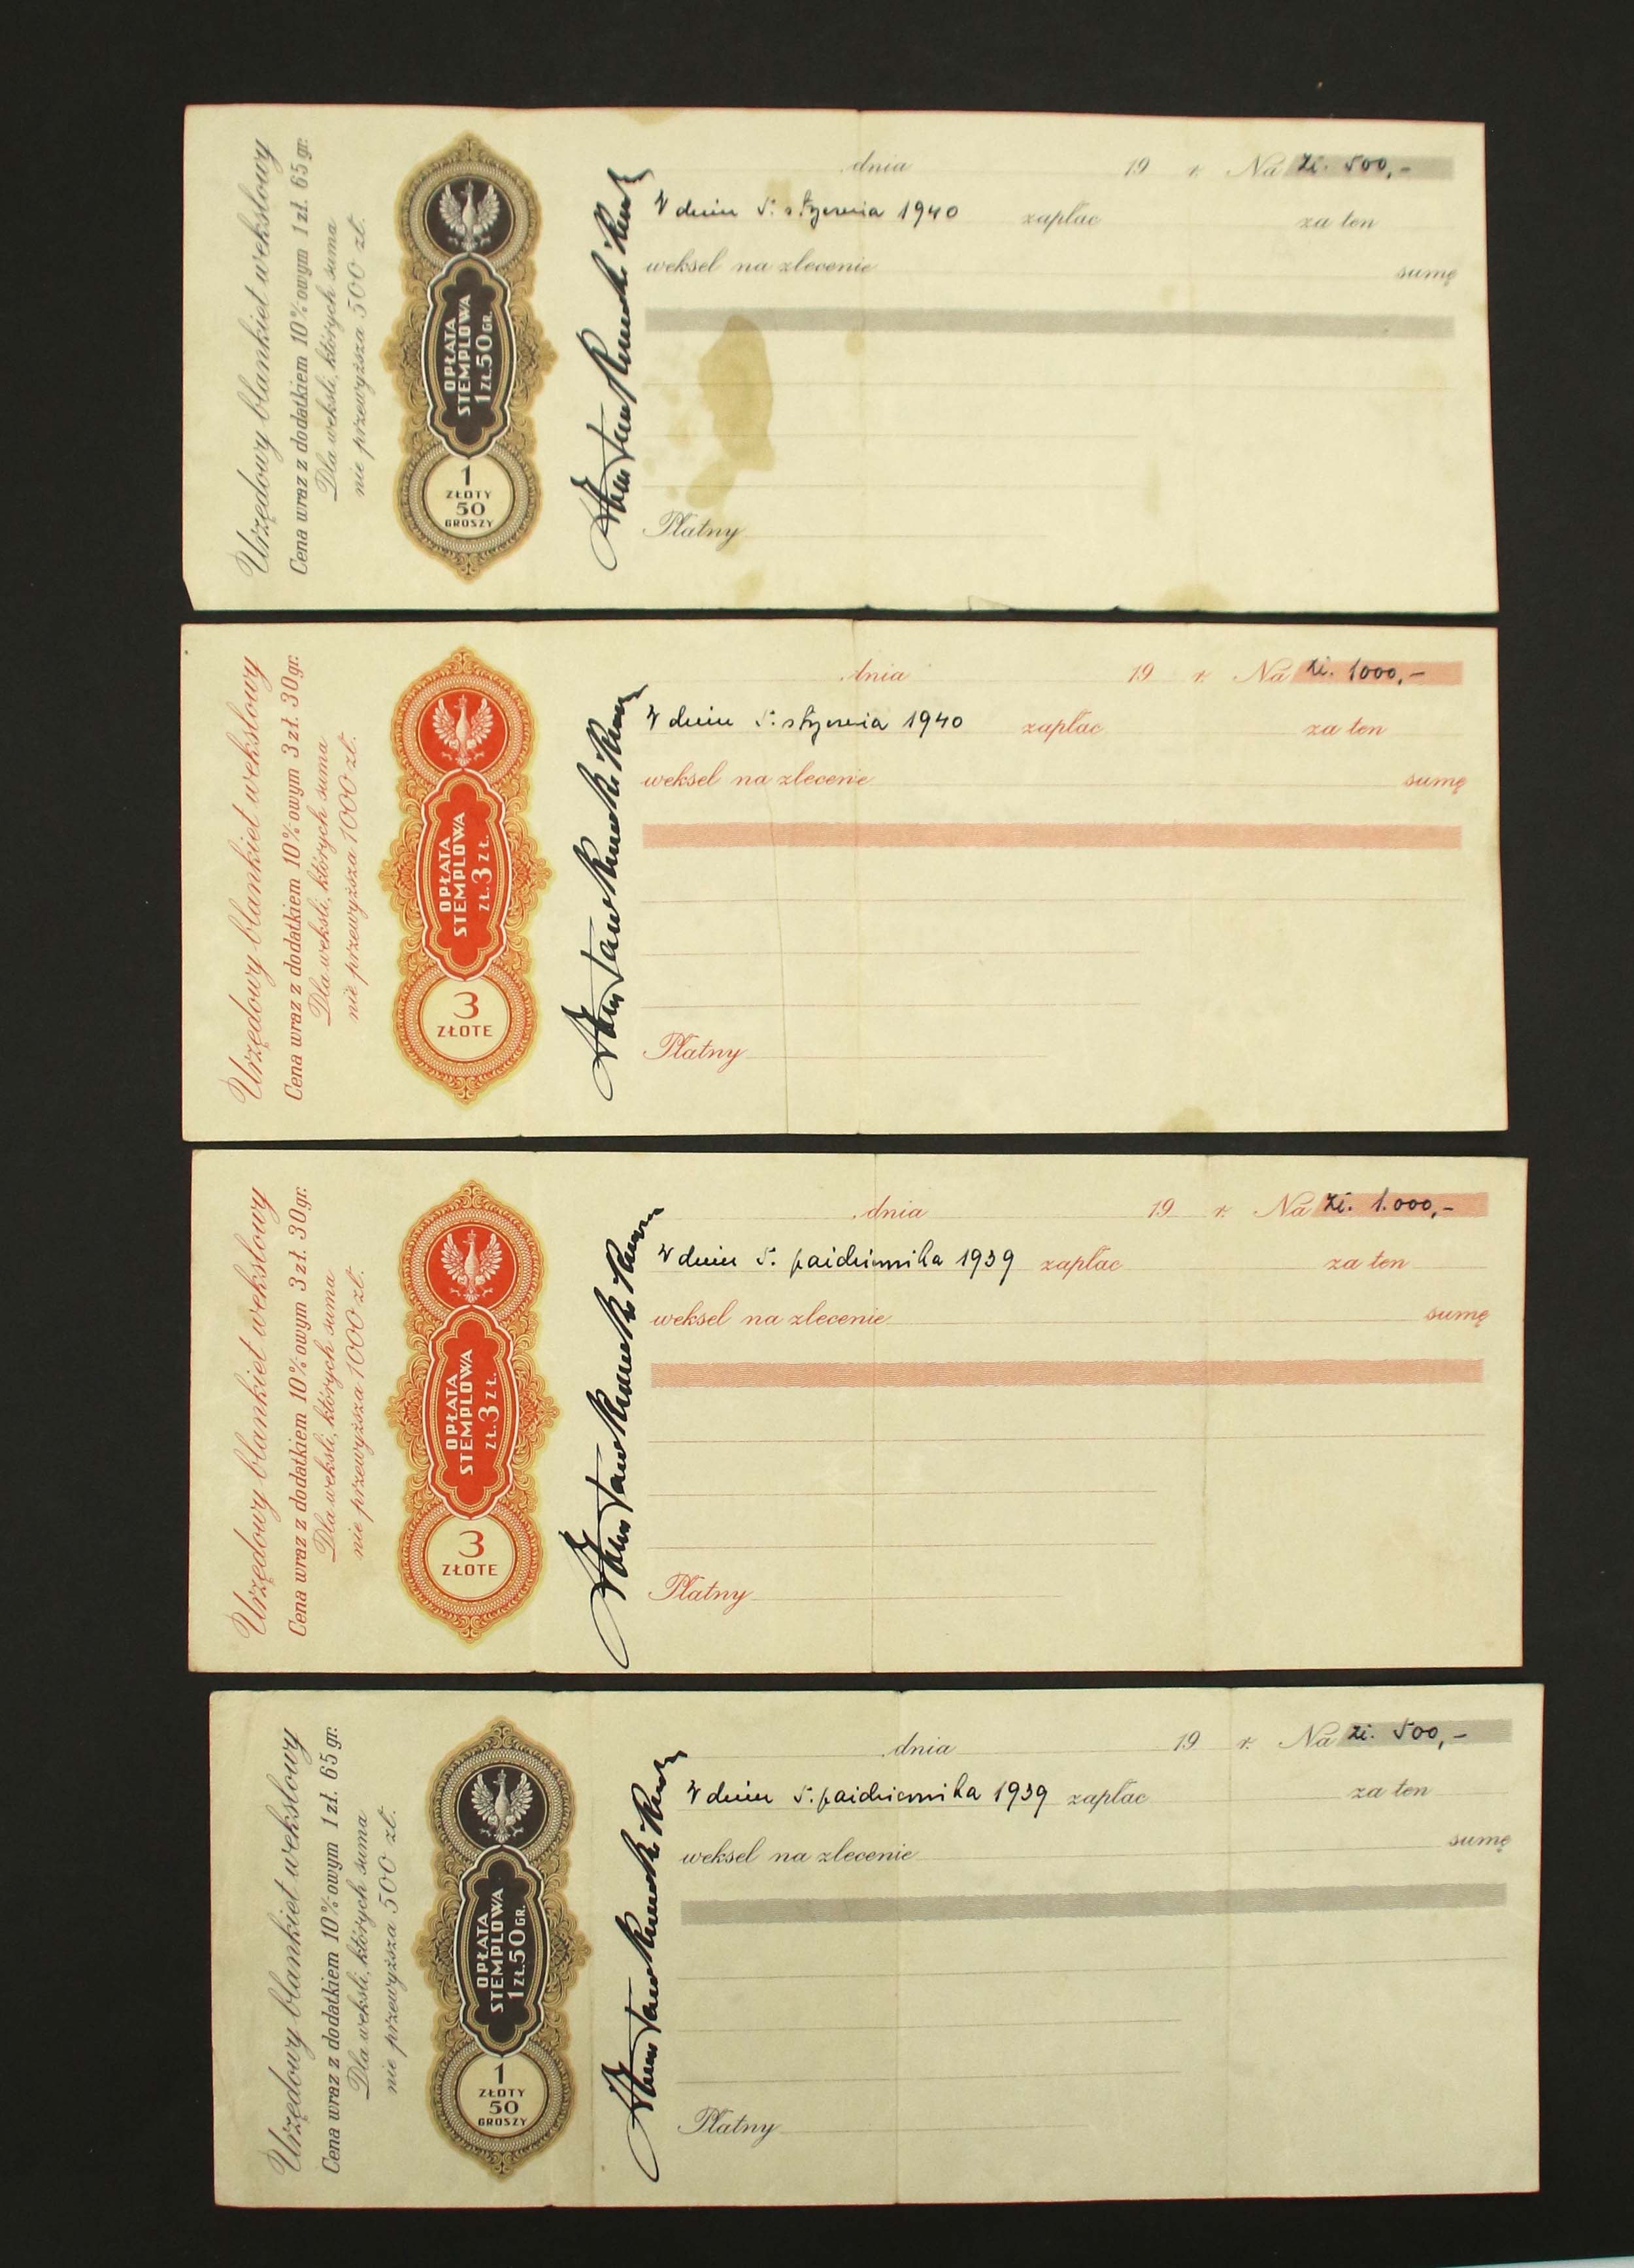 Urzędowy blankiet wekslowy
Cena wraz z dodatkiem 10%-owym 1 zł. 65 gr.
Dla weksli, których suma
nie przewyższa 500 zł.
OPŁATA
STEMPLOWA
1 ZŁ. 50 GR.
1
ZŁOTY
50
GROSZY
, dnia 19 r. Na zł. 500,-
W dniu 5. stycznia 1940 zapłac za ten
weksel na zlecenie sumę
Płatny
Urzędowy blankiet wekslowy
Cena wraz z dodatkiem 10%-owym 3 zł. 30 gr.
Dla weksli, których suma
nie przewyższa 1000 zł.
OPŁATA
STEMPLOWA
ZŁ. 3 ZŁ.
3
ZŁOTE
, dnia 19 r. Na zł. 1000,-
W dniu 5. stycznia 1940 zapłac za ten
weksel na zlecenie sumę
Płatny
Urzędowy blankiet wekslowy
Cena wraz z dodatkiem 10%-owym 3 zł. 30 gr.
Dla weksli, których suma
nie przewyższa 1000 zł.
OPŁATA
STEMPLOWA
ZŁ. 3 ZŁ.
3
ZŁOTE
, dnia 19 r. Na zł. 1.000,-
W dniu 5. października 1939 zapłac za ten
weksel na zlecenie sumę
Płatny
Urzędowy blankiet wekslowy
Cena wraz z dodatkiem 10%-owym 1 zł. 65 gr.
Dla weksli, których suma
nie przewyższa 500 zł.
OPŁATA
STEMPLOWA
1 ZŁ. 50 GR.
1
ZŁOTY
50
GROSZY
, dnia 19 r. Na zł. 500,-
W dniu 5. października 1939 zapłac za ten
weksel na zlecenie sumę
Płatny